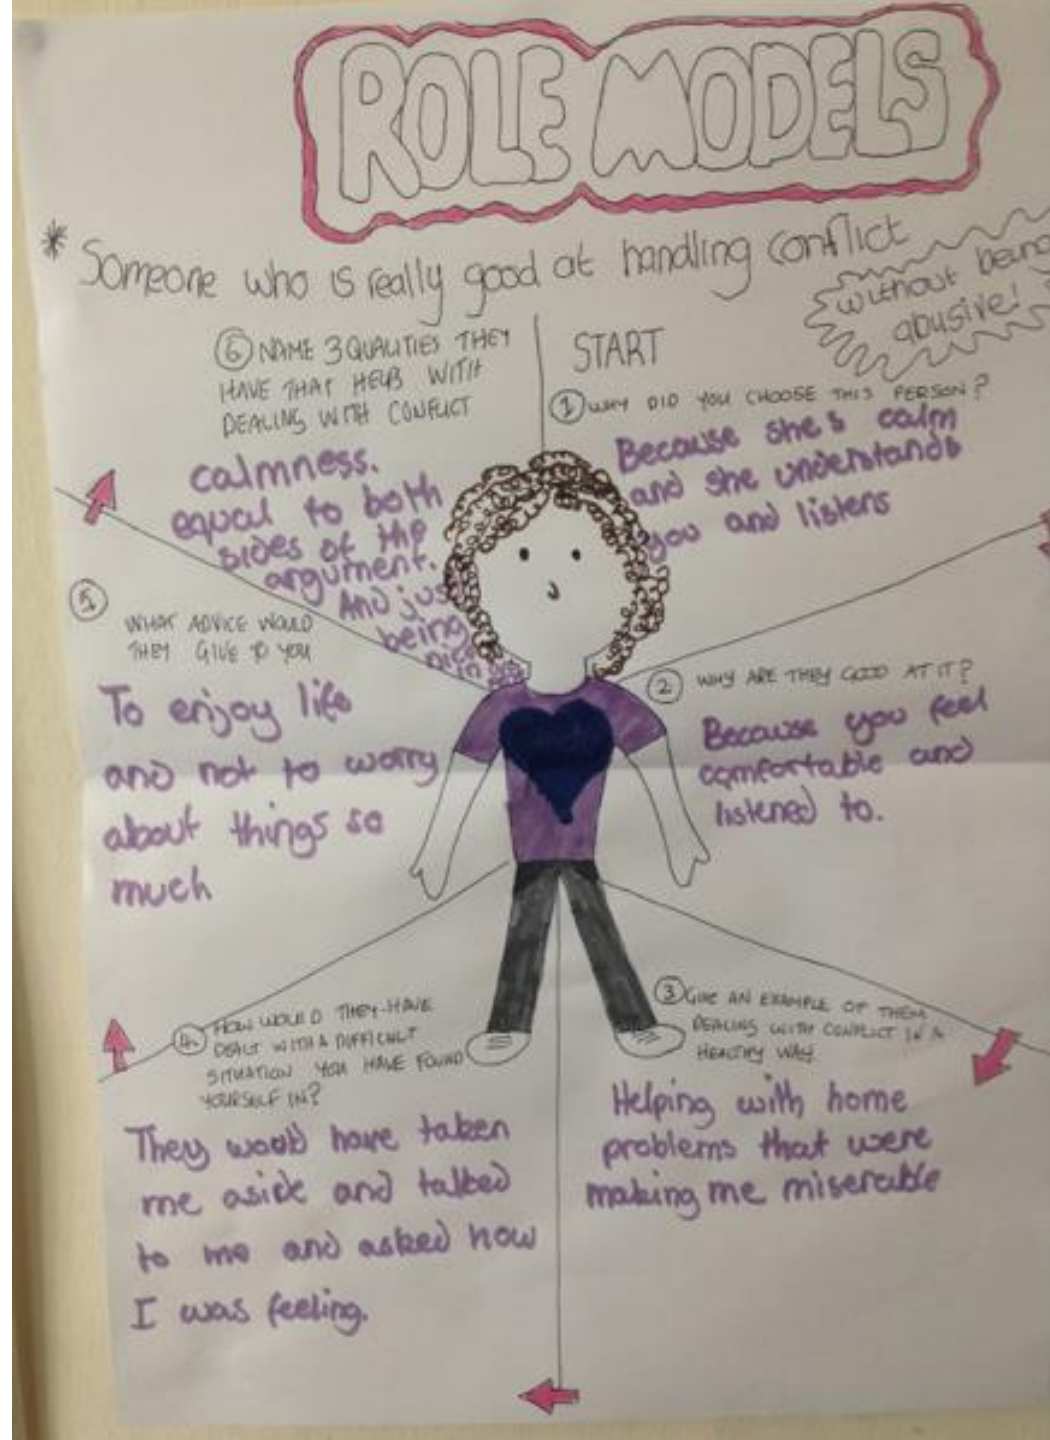 ROLE MODELS
* Someone who is really good at handling conflict
without being
abusive!
START
① WHY DID YOU CHOOSE THIS PERSON?
Because she's calm
and she understands
you and listens
② WHY ARE THEY GOOD AT IT?
Because you feel
comfortable and
listened to.
③ GIVE AN EXAMPLE OF THEM
DEALING WITH CONFLICT IN A
HEALTHY WAY
Helping with home
problems that were
making me miserable
4. HOW WOULD THEY HAVE
DEALT WITH A DIFFICULT
SITUATION YOU HAVE FOUND
YOURSELF IN?
They would have taken
me aside and talked
to me and asked how
I was feeling.
⑤ WHAT ADVICE WOULD
THEY GIVE TO YOU
To enjoy life
and not to worry
about things so
much
⑥ NAME 3 QUALITIES THEY
HAVE THAT HELPS WITH
DEALING WITH CONFLICT
calmness.
equal to both
sides of the
argument.
And jus
being